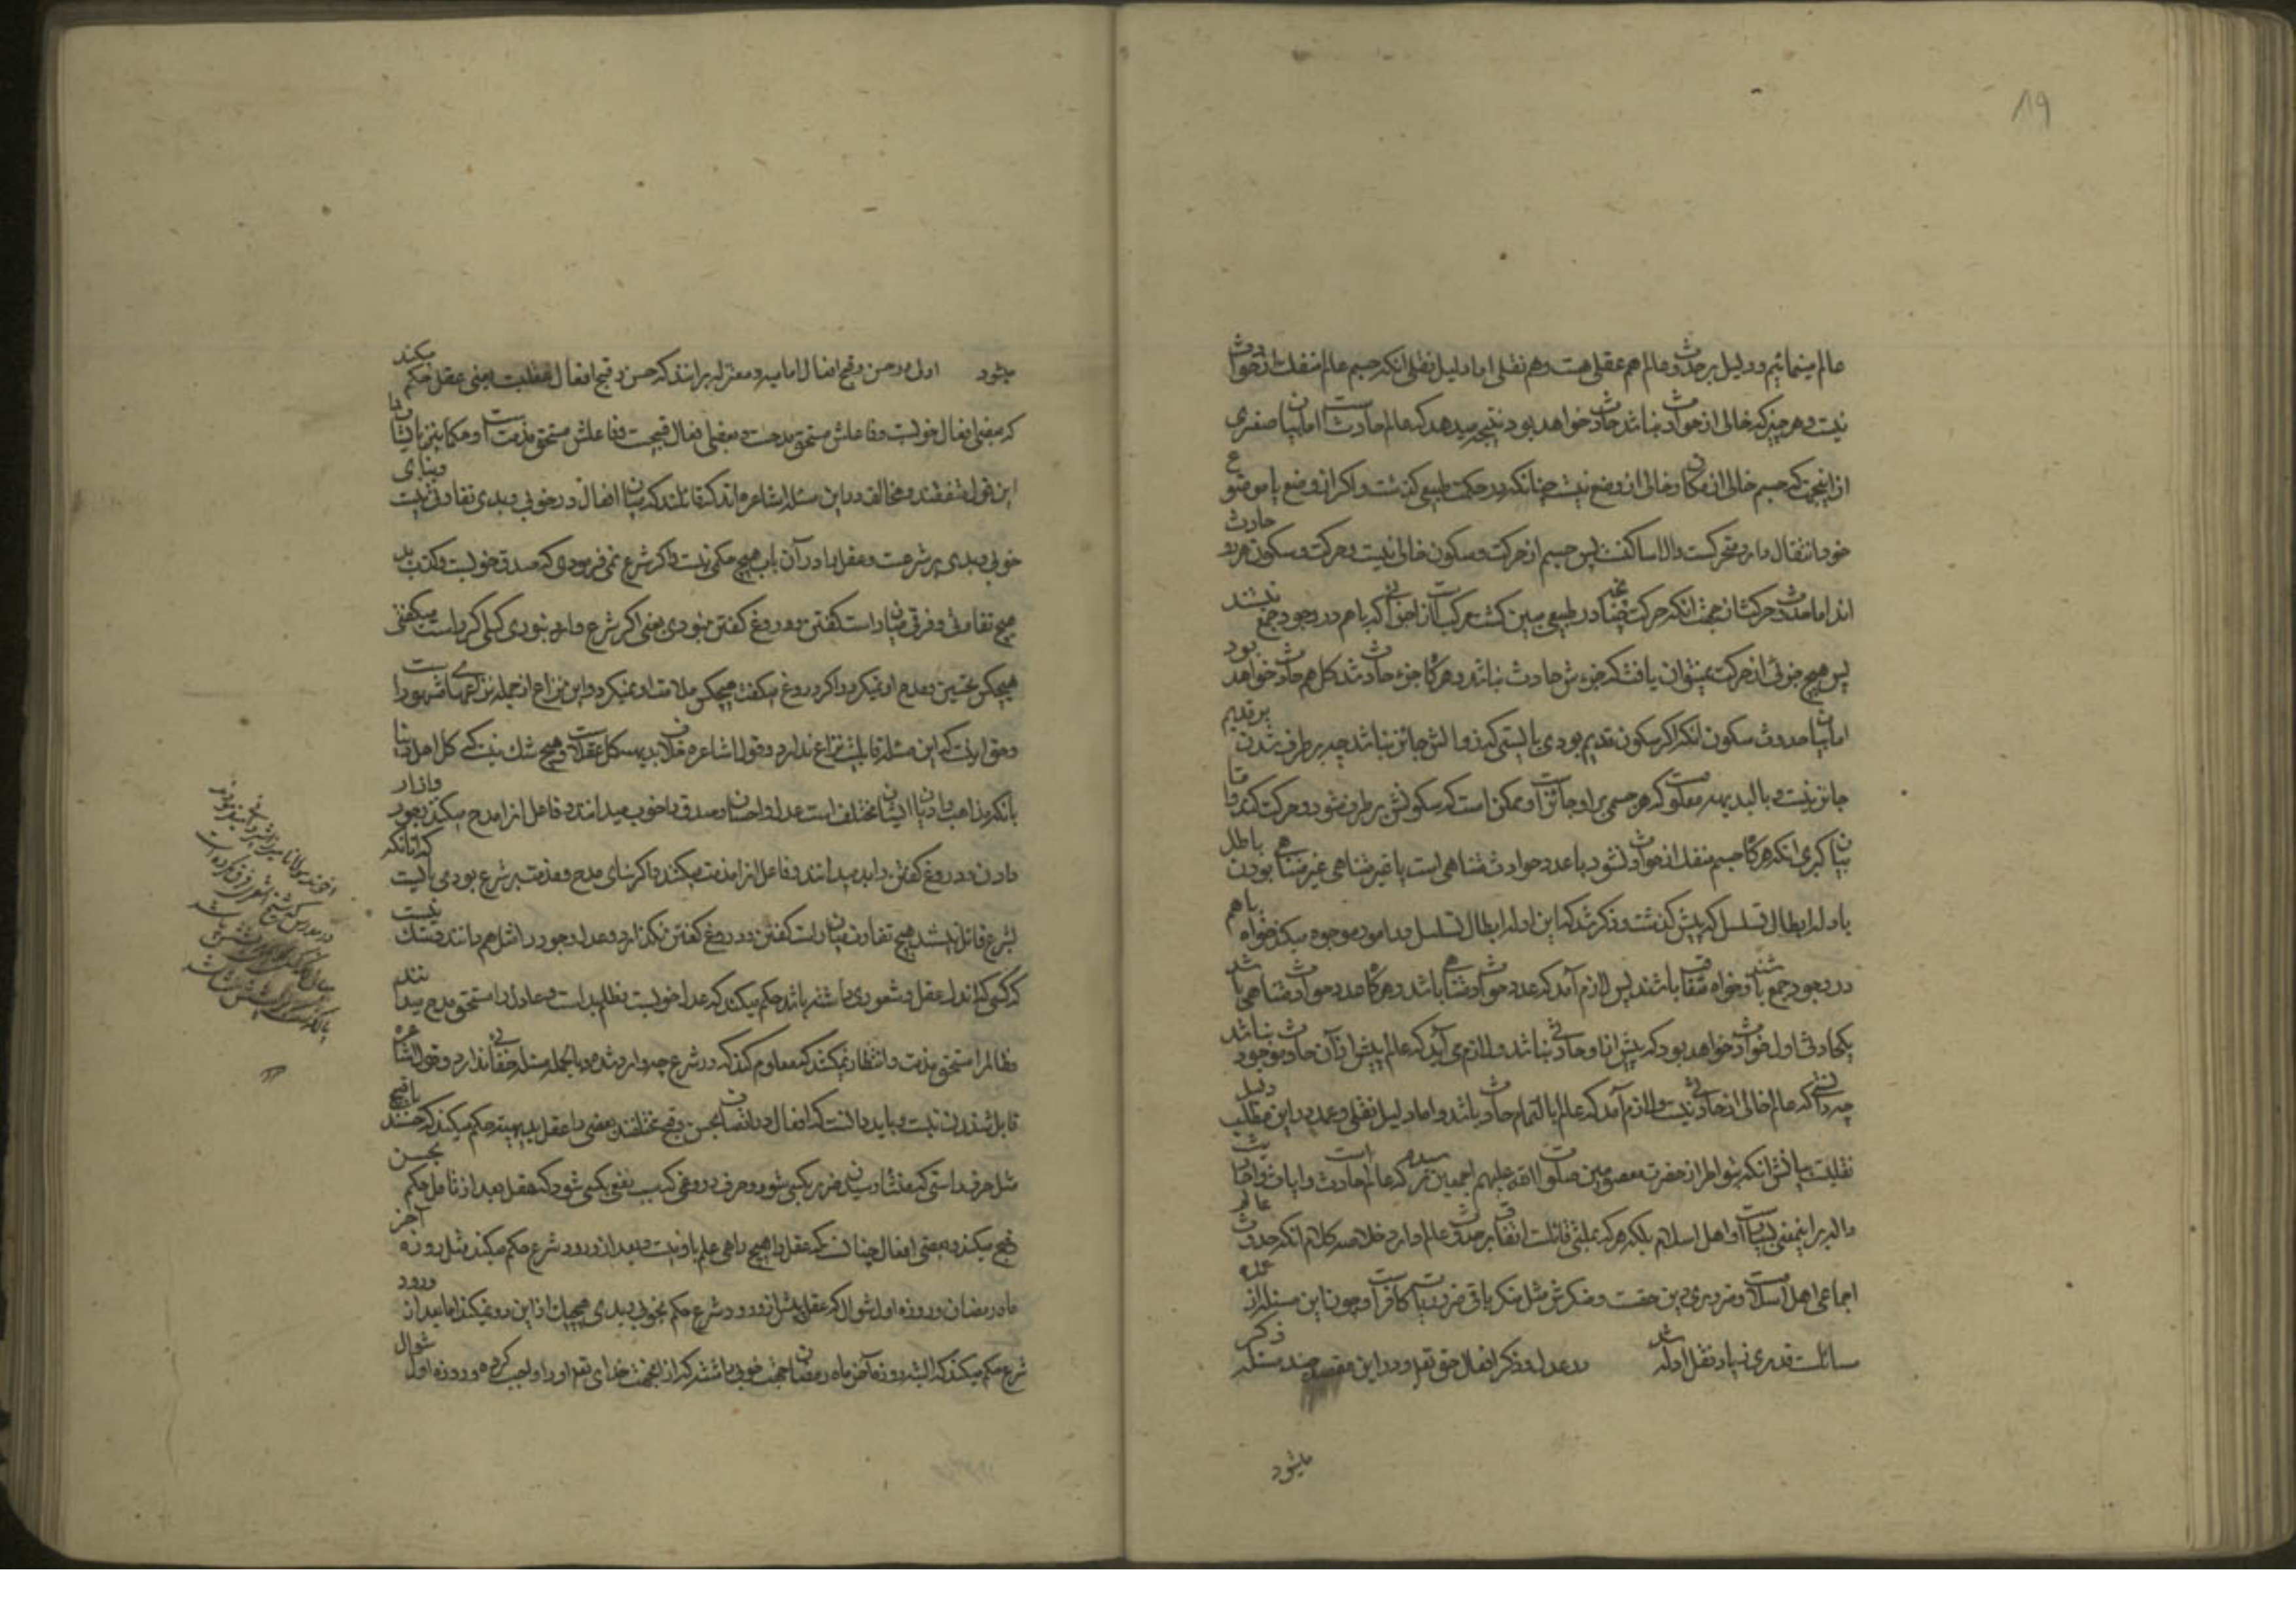 ۸۹
عالم مینمائیم و دلیل بر حدوث عالم هم عقلی هست و هم نقلی اما دلیل نقلی انکه جسم عالم منفک از حوادث
نیست و هر چیز که خالی از حوادث نباشد حادث خواهد بود نتیجه میدهد که عالم حادث است اما بیان صغری
از اینجهت که جسم خالی از مکان و خالی از وضع نیست چنانکه در حکمت طبیعی گذشت و اکر از وضع یا موضع
خود انتقال دارد متحرکست والا ساکنست پس جسم از حرکت و سکون خالی نیست و حرکت و سکون هر دو حادث
اند اما حدوث حرکت از جهت انکه حرکت چنانچه در طبیعی مبین کشت مرکب است از اجزائی که با هم در وجود جمع نیستند
پس هیچ جزئی از حرکت نمیتوان یافت که جزء ش حادث نباشد و هرگاه جزء حادث شد کل هم حادث خواهد بود
اما بیان حدوث سکون انکه اکر سکون قدیم بودی بایستی که زوالش جائز نباشد چه برطرف شدن بر قدیم
جائز نیست و بالبدیهه معلومست که هر جسمی را و جائز است و ممکن است که سکونش برطرف شود و حرکت کند و اما
بیان کبری انکه هرگاه جسم منفک از حوادث نشود یا عدد حوادث متناهی است یا غیر متناهی غیر متناهی بودن باطل
بادله ابطال تسلسل که پیش گذشت و ذکر شد که این ادله ابطال تسلسل در امور موجوده میکند خواه با هم
در وجود جمع باشند و خواه متعاقب باشند پس لازم آمد که عدد حوادث متناهی باشد و هرگاه عدد حوادث متناهی باشد
یکحادثی اول حوادث خواهد بود که پیش از او حادثی نباشد و لازم می آید که عالم پیش از آن حادث موجود نباشد
چه دانستی که عالم خالی از حادثی نیست و لازم آمد که عالم بالتمام حادث باشد و اما دلیل نقلی و عمده در این مطلب دلیل
نقلیست بیانش انکه بتواتر از حضرت معصومین صلوات الله علیهم اجمعین رسیده که عالم حادث است و آیات و احادیث
داله بر اینمعنی بسیار است و اهل اسلام بلکه هر که بملتی قائلست اتفاق بر حدوث عالم دارد خلاصه کلام انکه حدوث عالم
اجماعی اهل اسلام است و ضروری دین حقست و منکرش مثل منکر باقی ضروریات کافر است و چون این مسئله از عمده
مسائلست قدری زیاد نقل ادله شد در عدل و ذکر افعال حق تعالی و در این مقصد چند مسئله ذکر
میشود
میشود اول در حسن و قبح افعال امامیه و معتزله برانند که حسن و قبح افعال عقلیست یعنی عقل حکم میکند
که بعضی افعال خوبست و فاعلش مستحق مدحست و بعضی افعال قبیحست و فاعلش مستحق مذمت است و حکما نیز با ایشان
این قول متفقند و مخالف در این مسئله اشاعره اند که قائلند که میان افعال در خوبی و بدی تفاوتی نیست و بنای
خوبی و بدی بر شرعست و عقل را در آن باب هیچ حکمی نیست و اکر شرع نمی فرمودی که صدق خوبست و کذب بد
هیچ تفاوتی و فرقی میان راست کفتن و دروغ کفتن نبودی یعنی اکر شرع وارد نبودی کسی اکر راست میکفتی
هیچکس تحسین و مدح او نمیکرد و اکر دروغ میکفت هیچکس ملامت او نمیکرد و این نزاع از جمله نزاعهای مشهور است
و حق اینست که این مسئله قابلیت نزاع ندارد و قول اشاعره خلاف بدیهه کل عقلاست و هیچ شک نیست که کل اهل دنیا
بانکه مذاهب و ادیان ایشان مختلف است عدل و احسان و صدق را خوب میدانند و فاعل انرا مدح میکنند و جور و ازار
دادن و دروغ کفتن را بد میدانند و فاعل انرا مذمت میکنند و اکر بنای مدح و مذمت بر شرع بودی بایست که انانکه
بشرع قائل نیستند هیچ تفاوت میان راست کفتن و دروغ کفتن نگذارند و عدل و جور را مثل هم دانند و شک نیست
که کسی که اندک عقل و شعوری داشته باشد حکم میکند که عدل خوبست و ظلم بد است و عادل را مستحق مدح میدانند
و ظالم را مستحق مذمت و انتظار نمیکشند که معلوم کنند که در شرع چه وارد شده و بالجمله مسئله خفائی ندارد و قول اشاعره
قابل شنیدن نیست و باید دانست که افعال در اتصاف بحسن و قبح مختلفند بعضی را عقل ببدیهه حکم میکند که حسنند یا قبیح
مثل حرف راستی که منشاء ضرر بکسی شود و حرف دروغی که سبب نفعی بکسی شود که عقل بعد از تامل حکم بحسن
قبح میکند و بعضی افعال چنانست که عقل را هیچ راهی علم باو نیست و بعد از ورود شرع حکم میکند مثل روزه آخر
ماه رمضان و روزه اول شوال که عقل پیش از ورود شرع حکم بخوبی و بدی هیچیک از این دو نمیکند اما بعد از ورود
شرع حکم میکند که البته روزه آخر ماه رمضان جهت خوبی داشته که از اینجهت خدای تعالی او را واجب کرده و روزه اول شوال